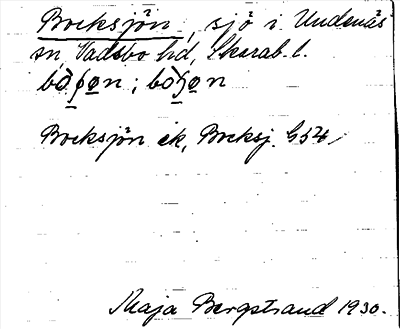 Bocksjön, sjö i Undenäs
sn, Vadsbo hd, Skarab. l.
Bocksjön ek, Bocksj. G54,
Maja Bergstrand 1930.